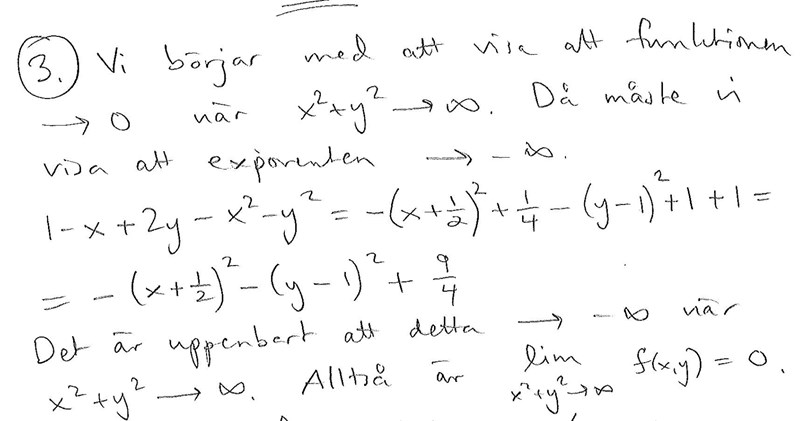 3. Vi börjar med att visa att funktionen
→ 0 när x²+y² → ∞. Då måste vi
visa att exponenten → -∞.
1-x+2y-x²-y² = -(x+1/2)²+1/4-(y-1)²+1+1=
= -(x+1/2)²-(y-1)²+9/4
Det är uppenbart att detta → -∞ när
x²+y² → ∞. Alltså är lim x²+y²→∞ f(x,y) = 0.